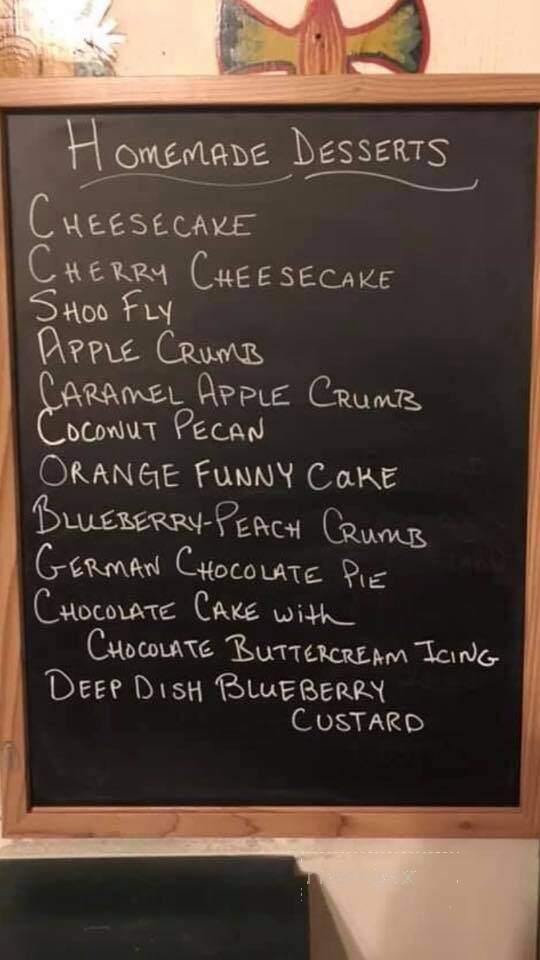 HOMEMADE DESSERTS
CHEESECAKE
CHERRY CHEESECAKE
SHOO FLY
APPLE CRUMB
CARAMEL APPLE CRUMB
COCONUT PECAN
ORANGE FUNNY CAKE
BLUEBERRY-PEACH CRUMB
GERMAN CHOCOLATE PIE
CHOCOLATE CAKE with
CHOCOLATE BUTTERCREAM ICING
DEEP DISH BLUEBERRY
CUSTARD